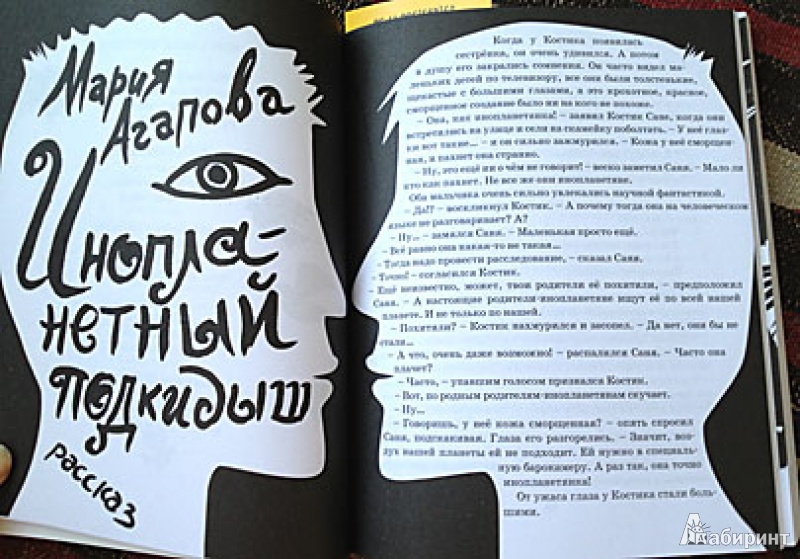 Мария
Агапова
Инопла-
нетный
подкидыш
рассказ
Когда у Костика появилась
сестрёнка, он очень удивился. А потом
в душу его закрались сомнения. Он часто видел ма-
леньких детей по телевизору, все они были толстенькие,
щекастые с большими глазами, а это крохотное, красное,
сморщенное создание было ни на кого не похоже.
– Она, как инопланетянка! – заявил Костик Сане, когда они
встретились на улице и сели на скамейку поболтать. – У неё глаз-
ки вот такие... – и он сильно зажмурился. – Кожа у неё сморщен-
ная, и пахнет она странно.
– Ну, это ещё ни о чём не говорит! – веско заметил Саня. – Мало ли
кто как пахнет. Не все же они инопланетяне.
Оба мальчика очень сильно увлекались научной фантастикой.
– Да!? – воскликнул Костик. – А почему тогда она на человеческом
языке не разговаривает? А?
– Ну... – замялся Саня. – Маленькая просто ещё.
– Всё равно она какая-то не такая...
– Тогда надо провести расследование, – сказал Саня.
– Точно! – согласился Костик.
– Ещё неизвестно, может, твои родители её похитили, – предположил
Саня. – А настоящие родители-инопланетяне ищут её по всей нашей
планете. И не только по нашей.
– Похитили? – Костик нахмурился и засопел. – Да нет, они бы не
стали...
– А что, очень даже возможно! – распалялся Саня. – Часто она
плачет?
– Часто, – упавшим голосом признался Костик.
– Вот, по родным родителям-инопланетянам скучает.
– Ну...
– Говоришь, у неё кожа сморщенная? – опять спросил
Саня, подскакивая. Глаза его разгорелись. – Значит, воз-
дух нашей планеты ей не подходит. Ей нужно в специаль-
ную барокамеру. А раз так, она точно
инопланетянка!
От ужаса глаза у Костика стали боль-
шими.
Лабиринт